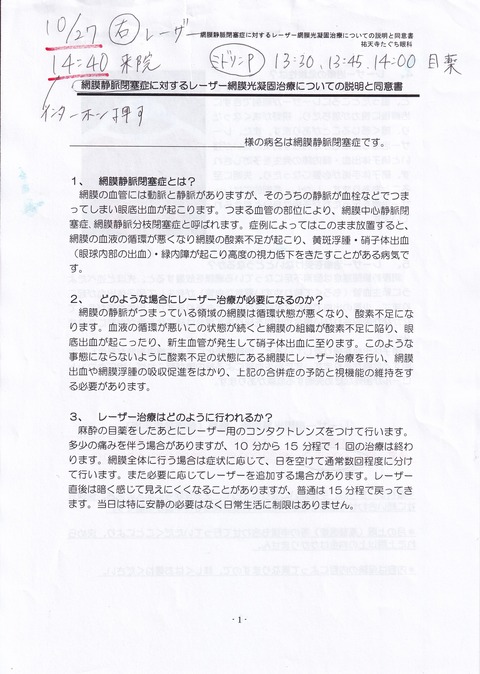 10/27 ㊨ レーザー
網膜静脈閉塞症に対するレーザー網膜光凝固治療についての説明と同意書
祐天寺たぐち眼科
14:40 来院 ミドリンP 13:30, 13:45, 14:00 目薬
網膜静脈閉塞症に対するレーザー網膜光凝固治療についての説明と同意書
インターホン押す
様の病名は網膜静脈閉塞症です。
1、 網膜静脈閉塞症とは?
網膜の血管には動脈と静脈がありますが、そのうちの静脈が血栓などでつま
ってしまい眼底出血が起こります。つまる血管の部位により、網膜中心静脈閉
塞症、網膜静脈分枝閉塞症と呼ばれます。症例によってはこのまま放置すると、
網膜の血液の循環が悪くなり網膜の酸素不足が起こり、黄斑浮腫・硝子体出血
(眼球内部の出血)・緑内障が起こり高度の視力低下をきたすことがある病気で
す。
2、 どのような場合にレーザー治療が必要になるのか?
網膜の静脈がつまっている領域の網膜は循環状態が悪くなり、酸素不足にな
ります。血液の循環が悪いこの状態が続くと網膜の組織が酸素不足に陥り、眼
底出血が起こったり、新生血管が発生して硝子体出血に至ります。このような
事態にならないように酸素不足の状態にある網膜にレーザー治療を行い、網膜
出血や網膜浮腫の吸収促進をはかり、上記の合併症の予防と視機能の維持をす
る必要があります。
3、 レーザー治療はどのように行われるか?
麻酔の目薬をしたあとにレーザー用のコンタクトレンズをつけて行います。
多少の痛みを伴う場合がありますが、10分から15分程で1回の治療は終わ
ります。網膜全体に行う場合は症状に応じて、日を空けて通常数回程度に分け
て行います。また必要に応じてレーザーを追加する場合があります。レーザー
直後は暗く感じて見えにくくなることがありますが、普通は15分程で戻ってき
ます。当日は特に安静の必要はなく日常生活に制限はありません。
- 1 -